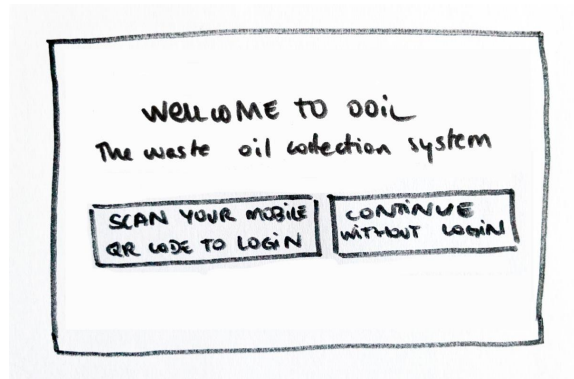 WELLCOME TO OOiL
The waste oil collection system
SCAN YOUR MOBILE
QR CODE TO LOGiN
CONTiNUE
WiTHOUT LOGiN